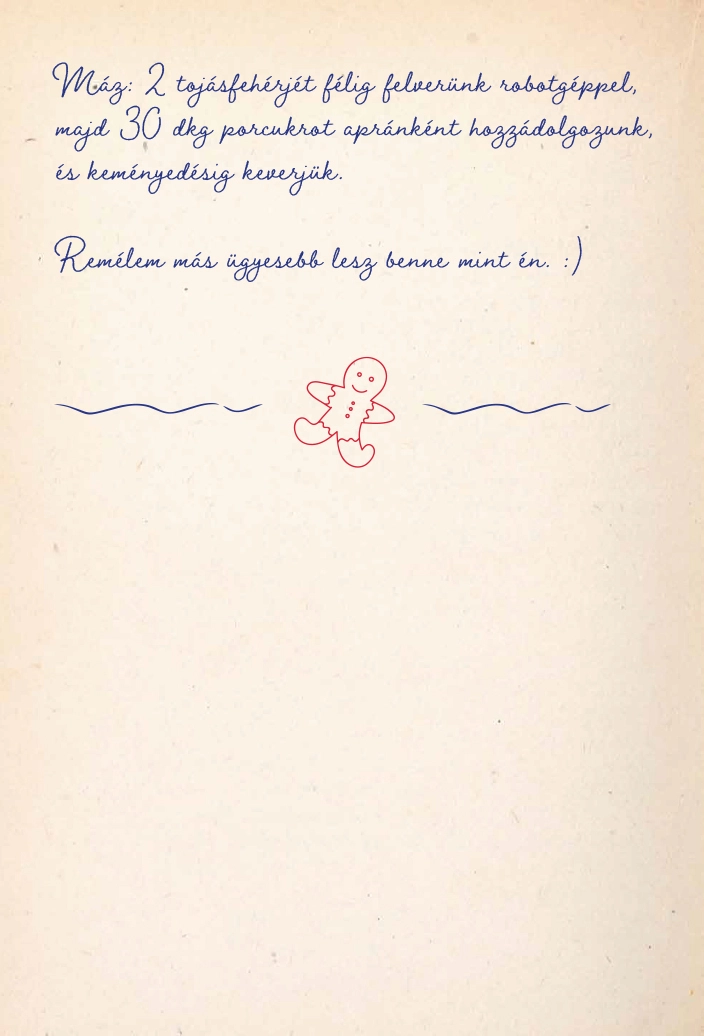 Máz: 2 tojásfehérjét félig felverünk robotgéppel,
majd 30 dkg porcukrot apránként hozzádolgozunk,
és keményedésig keverjük.
Remélem más ügyesebb lesz benne mint én. :)